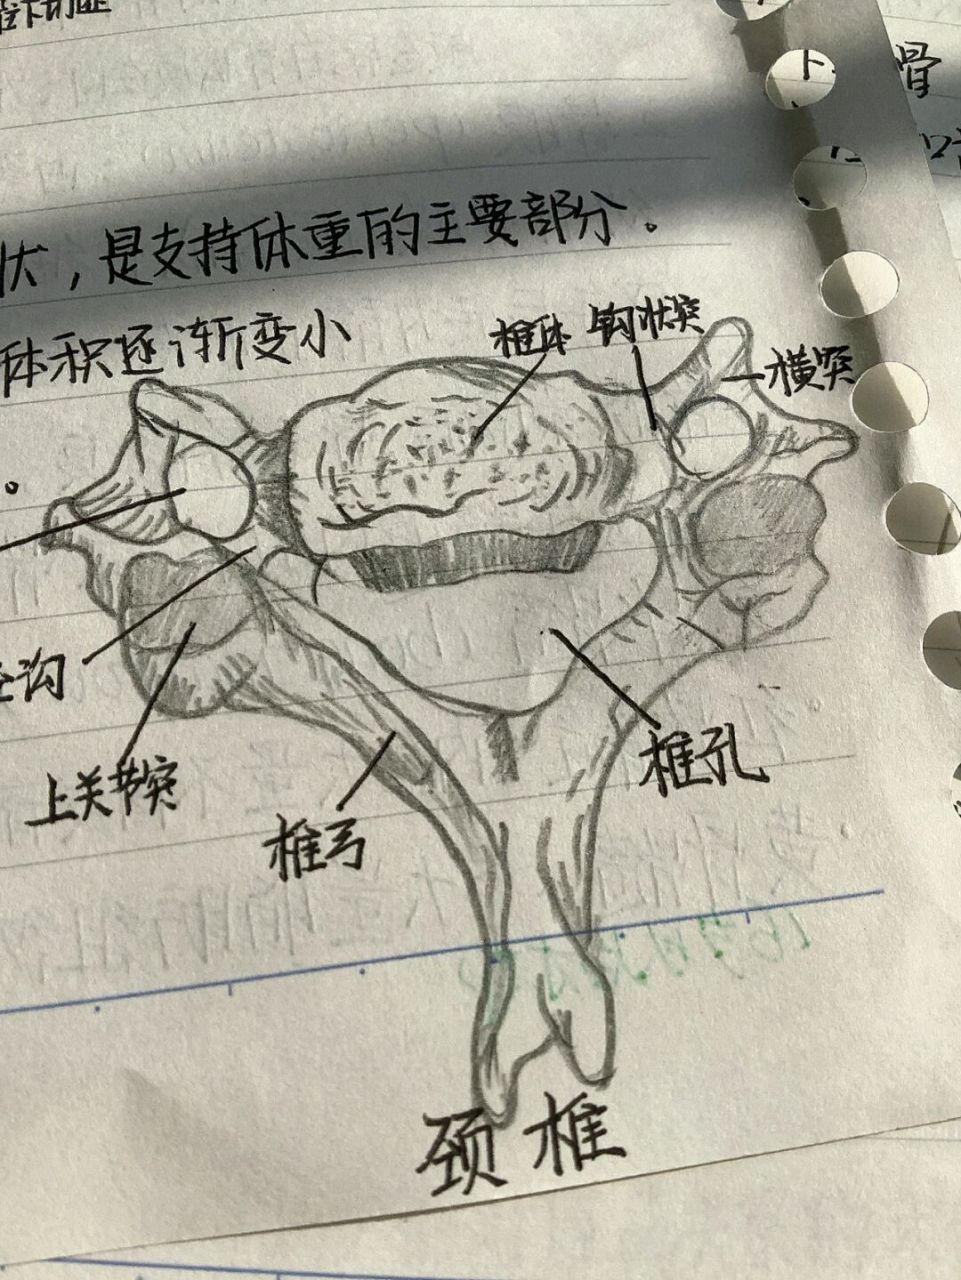 状，是支持体重的主要部分。
体积逐渐变小
。
椎体
钩状突
横突
沟
上关节突
椎弓
椎孔
颈椎
骨